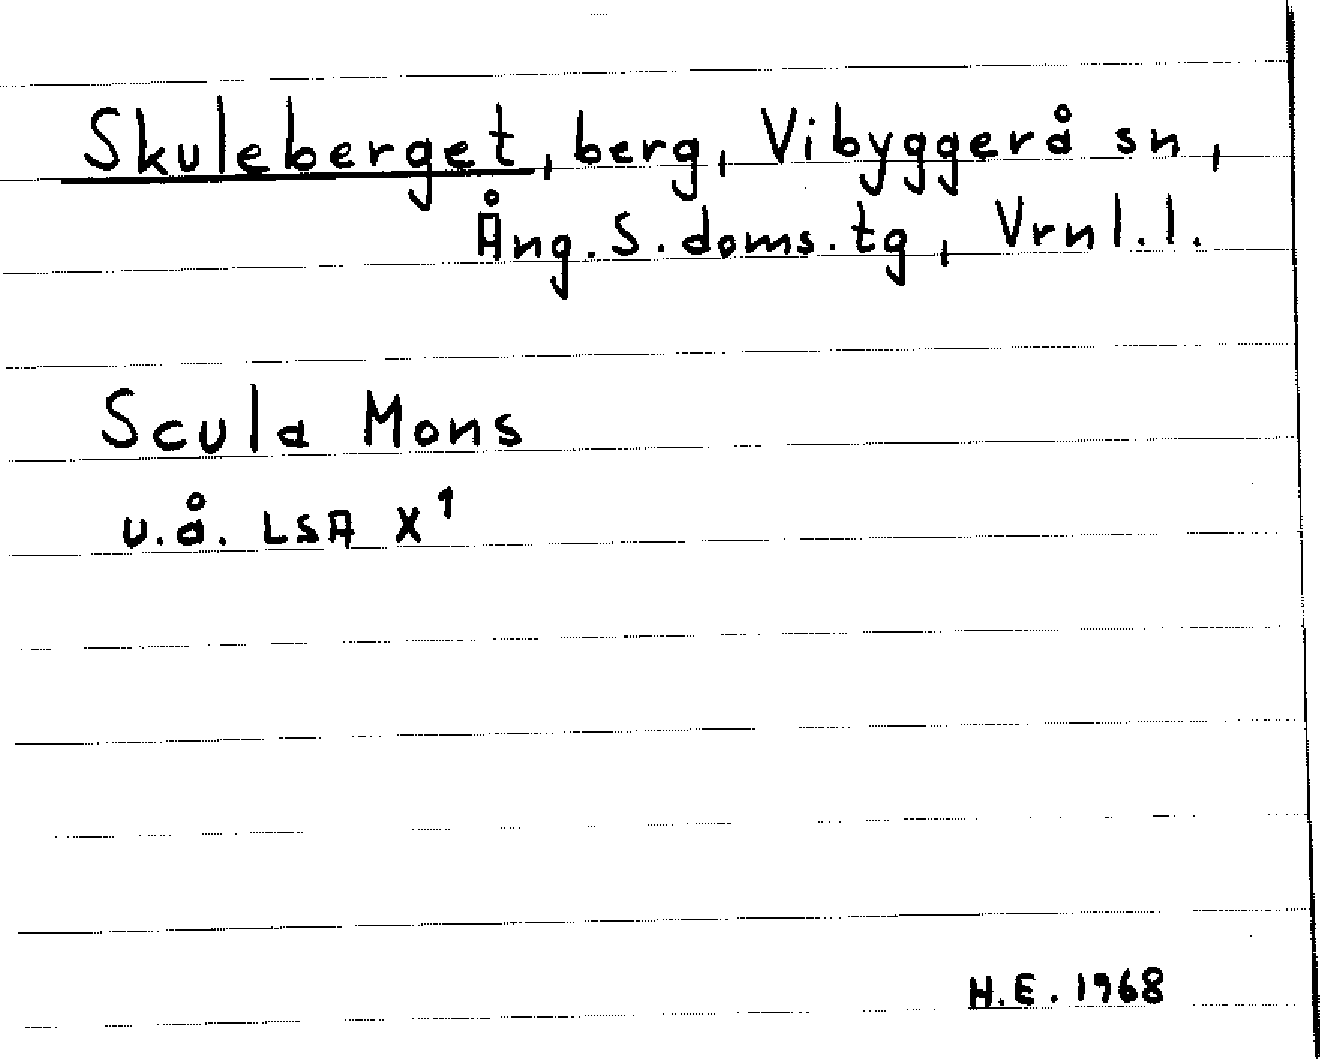 Skuleberget, berg, Vibyggerå sn,
Ång. S. doms. tg, Vrnl. l.
Scula Mons
u.å. LSA X¹
H.E. 1968